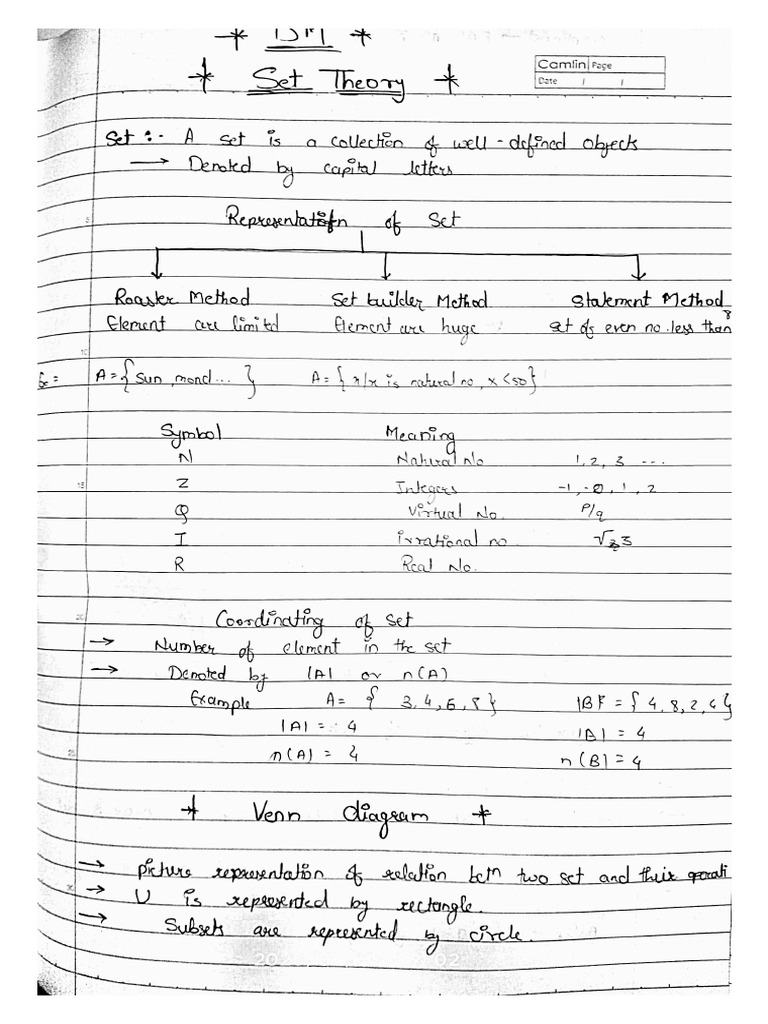 * DM *
* Set Theory *
Camlin Page
Date / /
Set :- A set is a collection of well-defined objects
→ Denoted by capital letters
Representation of Set
Roaster Method Set builder Method Statement Method
Element are limited Element are huge set of even no. less than 8
Ex = A = { Sun, mond... } A = { x/x is natural no, x < 50 }
Symbol Meaning
N Natural No 1, 2, 3 ...
Z Integers -1, -0, 1, 2
Q Virtual No. P/q
I irrational no. √3
R Real No.
Coordinating of set
→ Number of element in the set
→ Denoted by |A| or n(A)
Example A = { 3, 4, 6, 8 } |B| = { 4, 8, 2, 6 }
|A| = 4 |B| = 4
n(A) = 4 n(B) = 4
* Venn diagram *
→ picture representation of relation betn two set and their operati
→ U is represented by rectangle.
→ Subsets are represented by circle.